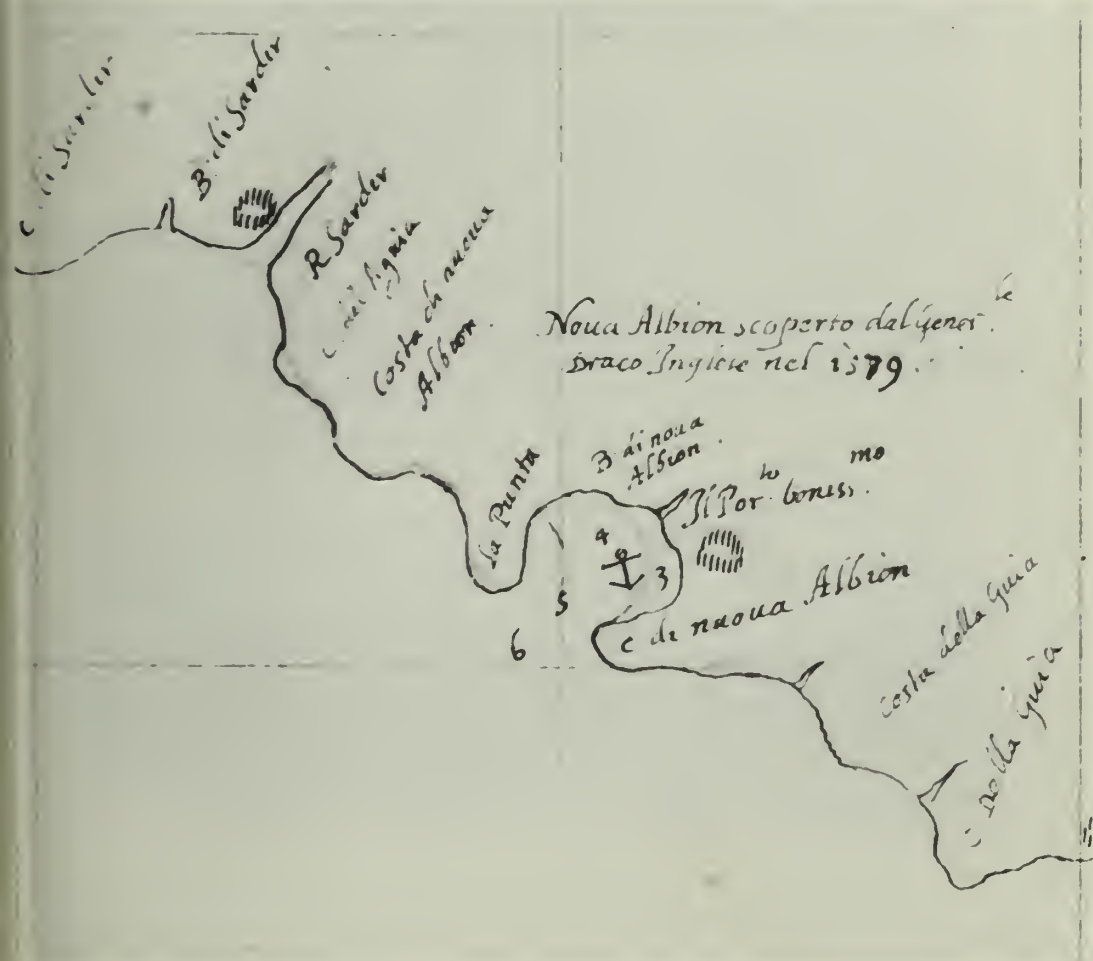 C di Sarder
B. di Sarder
R Sarder
C
Costa di nueua
Albion.
Noua Albion scoperto dal gener.le
Draco Inglese nel 1579.
B di noua
Albion.
Il Por.to boniss.mo
la Punta
4
3
5
6
C di nuoua Albion
Costa della Guia
C Della Guia